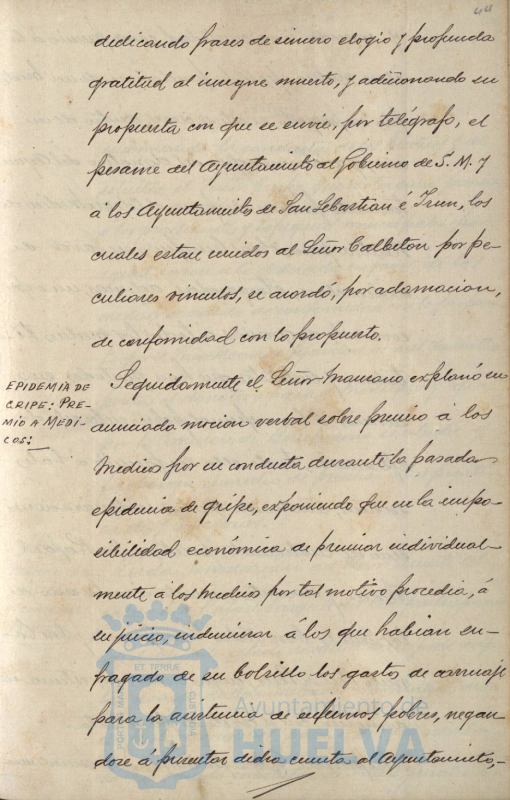 44
dedicando frases de sincero elogio y profunda
gratitud al insigne muerto, y adicionando su
propuesta con que se envie, por telégrafo, el
pesame del Ayuntamiento al Gobierno de S. M. y
á los Ayuntamientos de San Sebastian é Irun, los
cuales estan unidos al Señor Calbeton por pe-
culiares vinculos, se acordó, por aclamacion,
de conformidad con lo propuesto.
EPIDEMIA DE
GRIPE: PRE-
MIO A MEDI-
COS:
Seguidamente el Señor Mascaró explanó su
anunciada mocion verbal sobre premio á los
Medicos por su conducta durante la pasada
epidemia de gripe, exponiendo que en la impo-
sibilidad económica de premiar individual-
mente á los Medicos por tal motivo procedia, á
su juicio, indemnizar á los que habian su-
fragado de su bolsillo los gastos de carruaje
para la asistencia de enfermos pobres, negan-
dose á presentar dicha cuenta al Ayuntamiento,-
PORTUS MARIS
ET TERRÆ
CUSTODIA
Ayuntamiento de
HUELVA